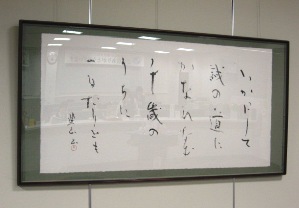 いかにして
誠の道に
かなひなむ
千歳の
うちに
一日なりとも